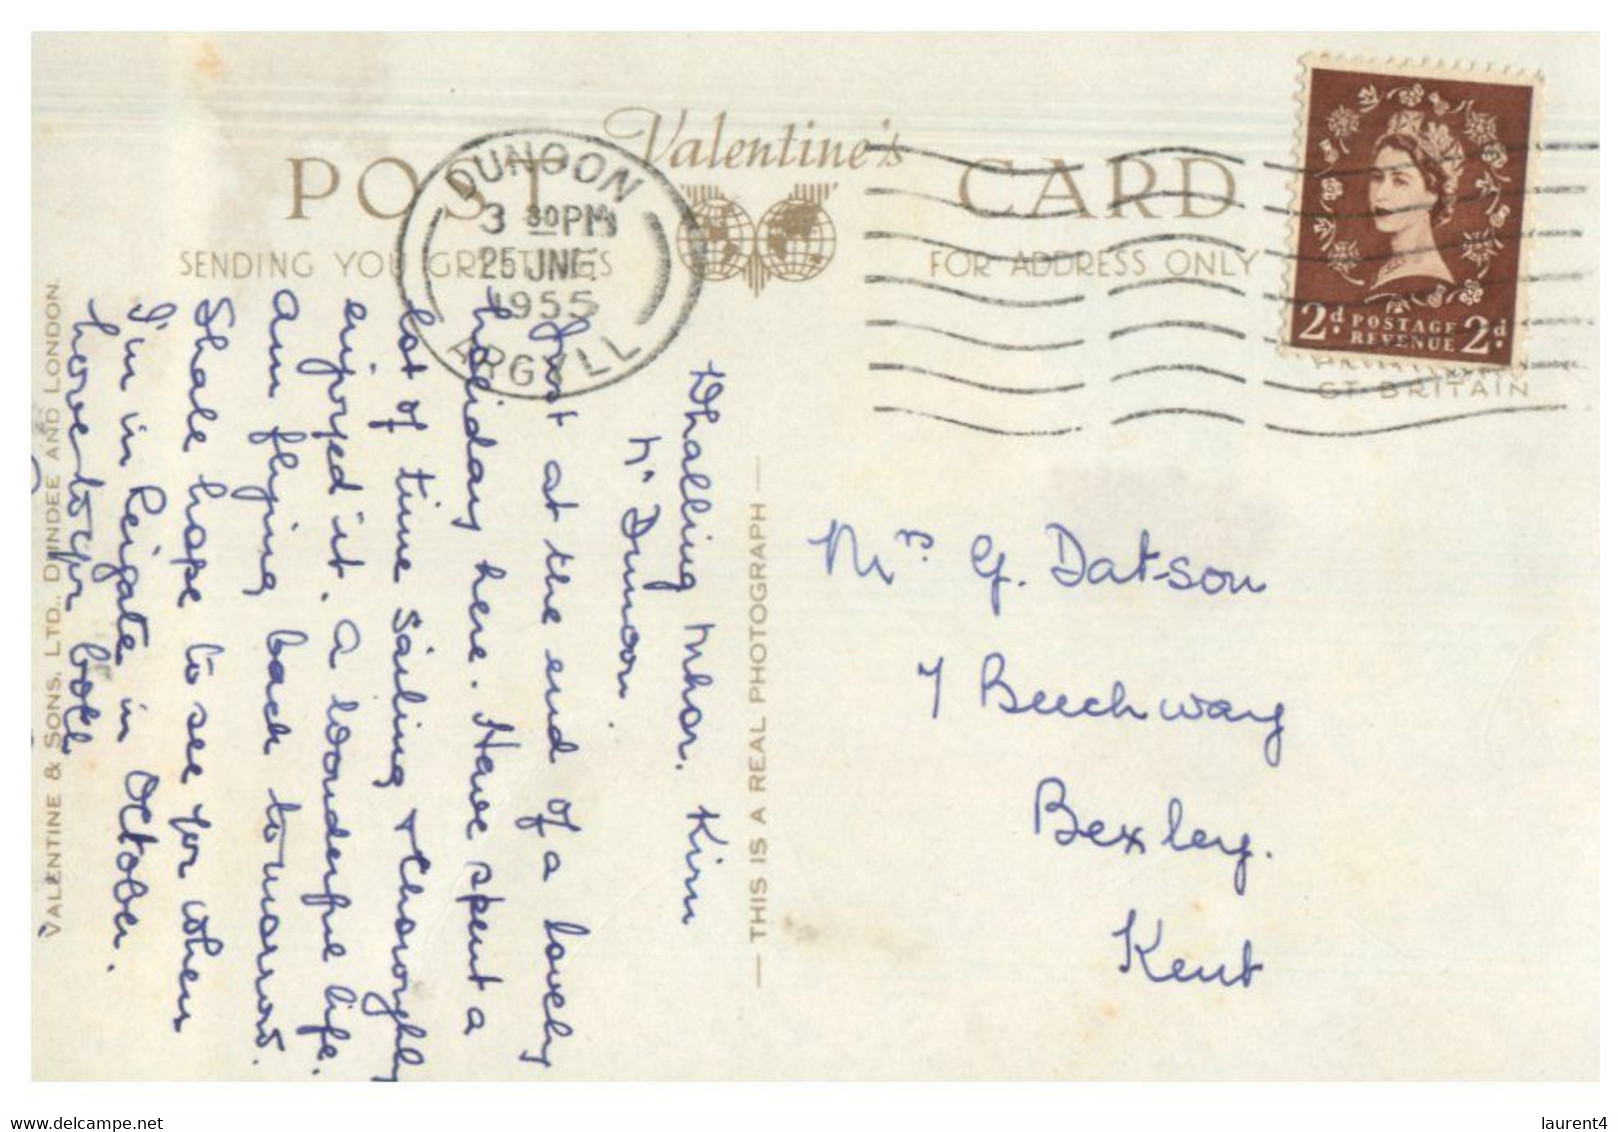 POST Valentine's CARD
SENDING YOU GREETINGS
FOR ADDRESS ONLY
DUNOON
3 30PM
25 JNE
1955
ARGYLL
2d POSTAGE 2d
REVENUE
GT BRITAIN
Whalling Mhor. Kirn
Nr Dunoon.
Just at the end of a lovely
holiday here. Have spent a
lot of time sailing & thoroughly
enjoyed it. A wonderful life.
Am flying back tomorrow.
Shall hope to see you when
I'm in Reigate in October.
love to you both
VALENTINE & SONS, LTD., DUNDEE AND LONDON.
— THIS IS A REAL PHOTOGRAPH —
Mrs. G. Datson
7 Beechway
Bexley.
Kent
delcampe.net
laurent4